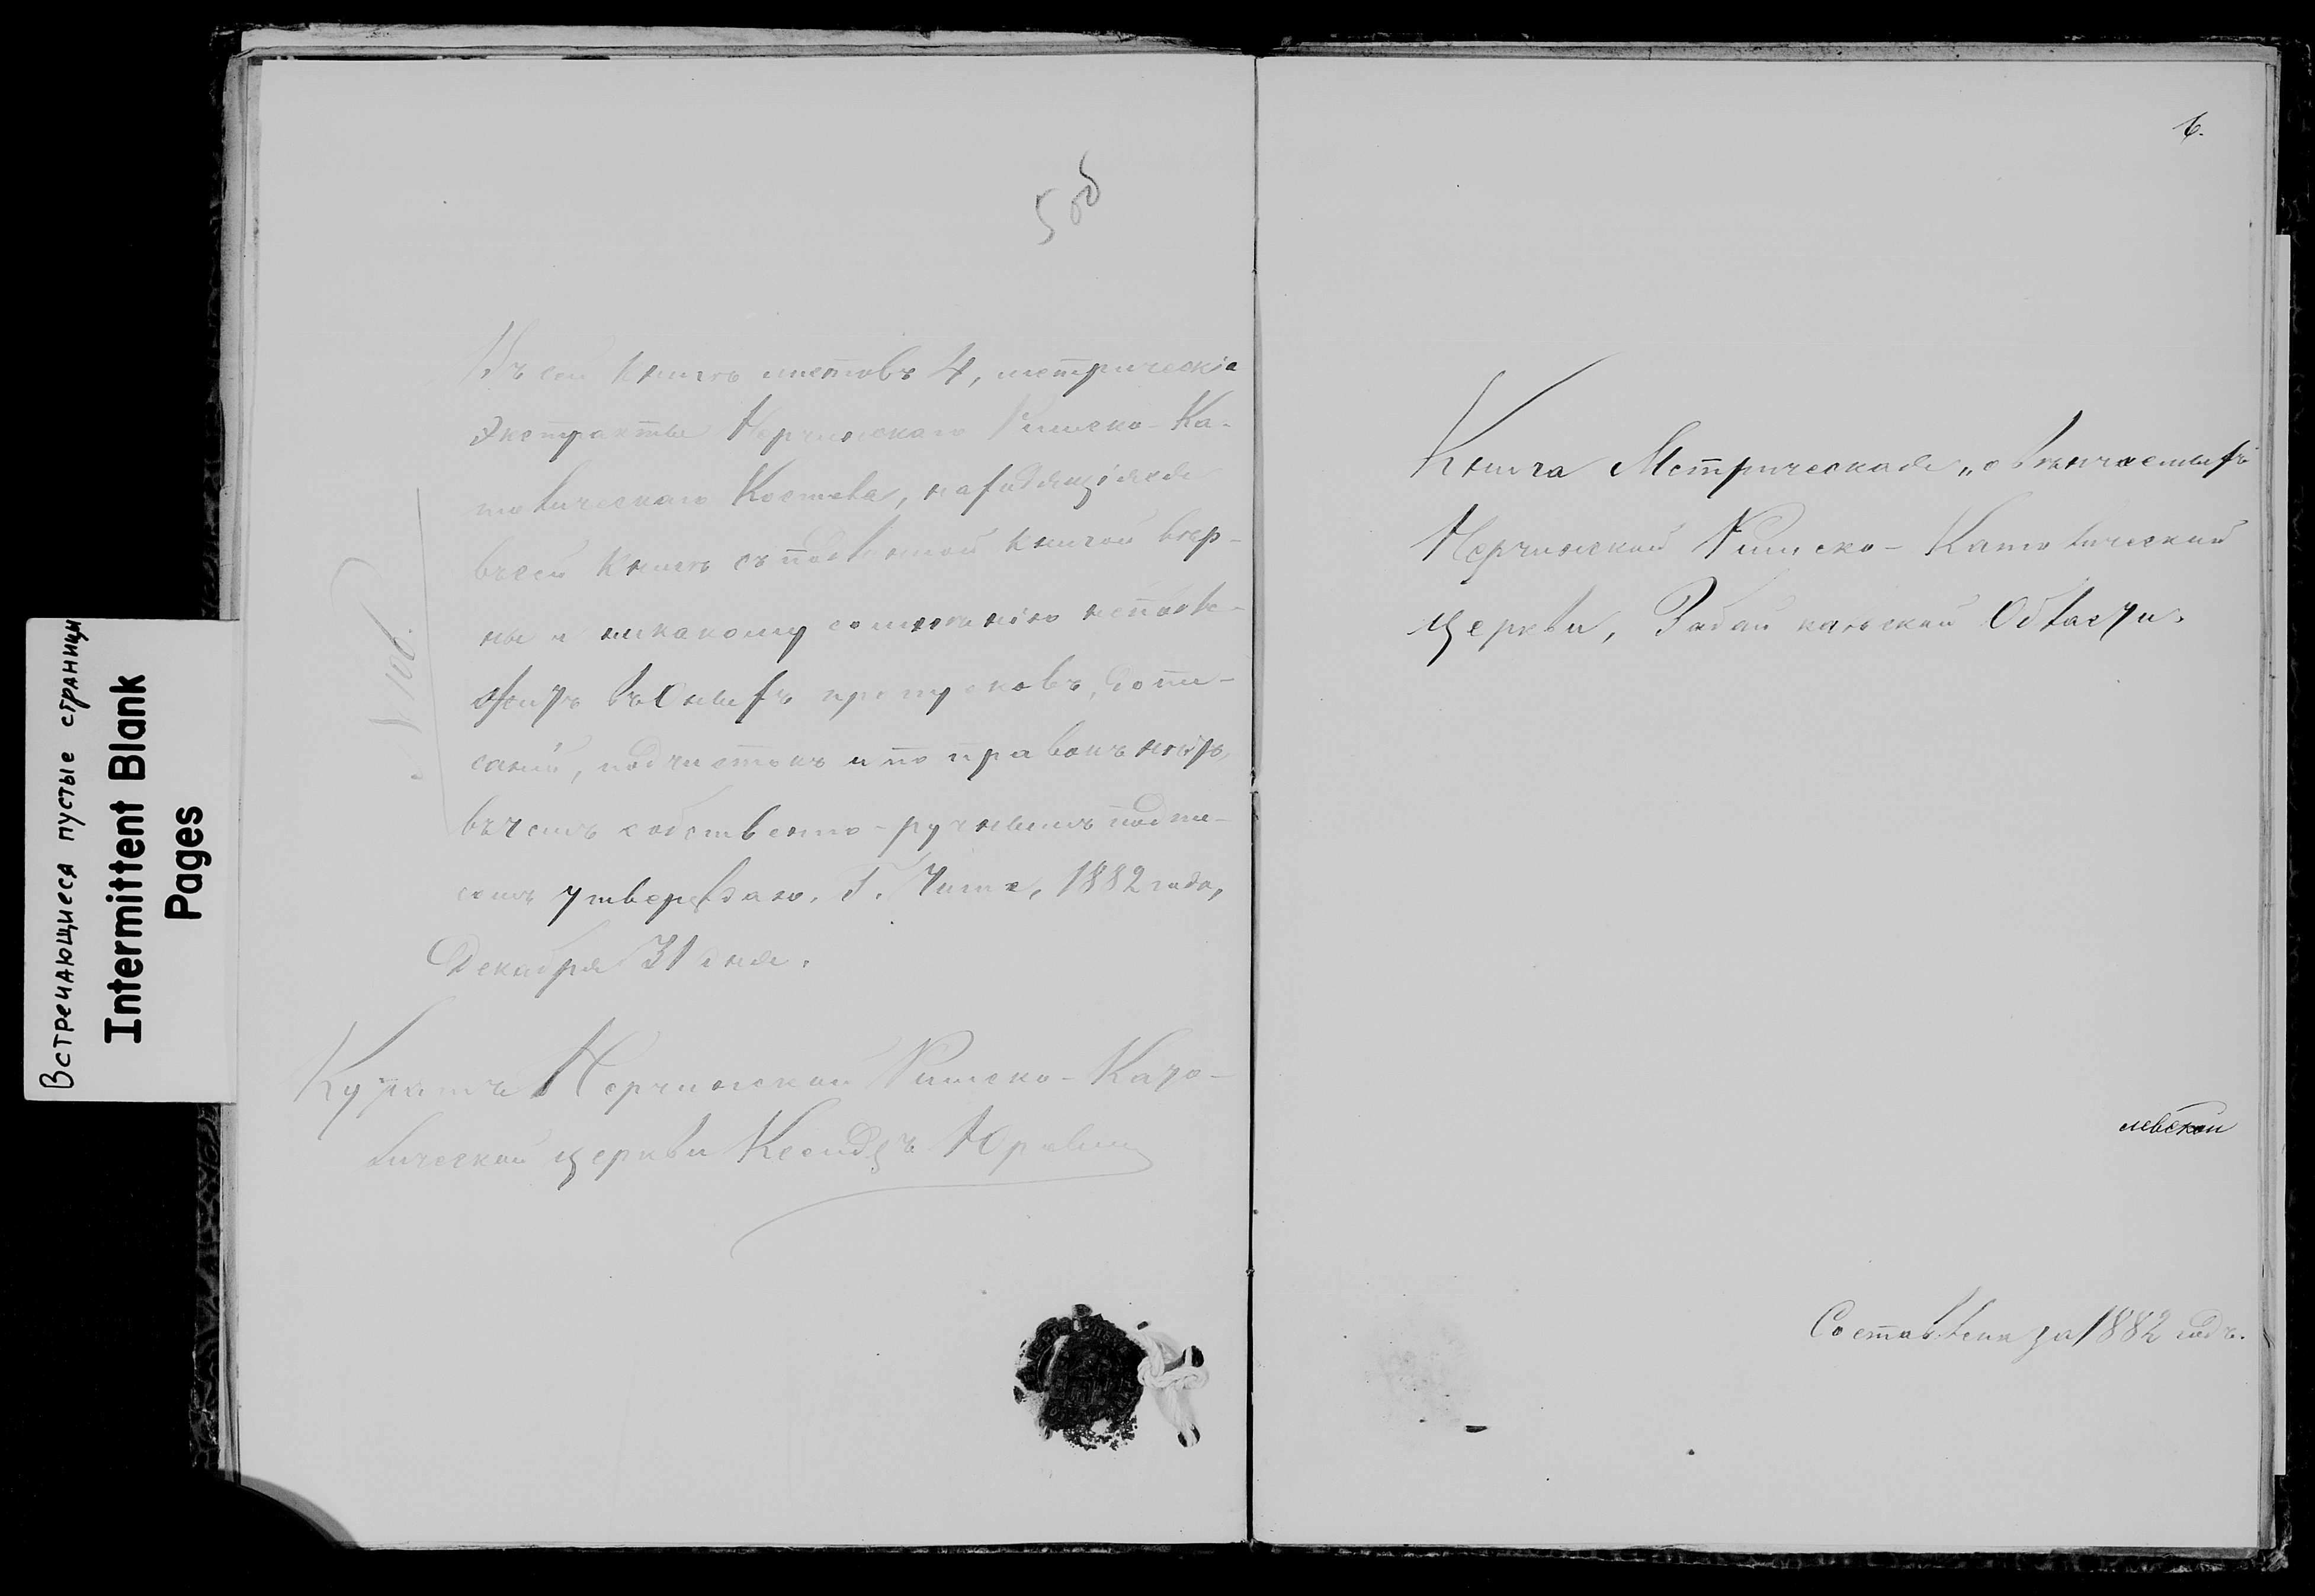 Встречающиеся пустые страницы
Intermittent Blank
Pages
5 об
Въ сей книгѣ листовъ 4, метрическіе
экстракты Нерчинскаго Римско-Ка-
толическаго Костела, находящіяся
въ сей книгѣ съ подлинной книгой вѣр-
ны и никакому сомнѣнію не подле-
жатъ въ оныхъ пропусковъ, допи-
саній, подчистокъ и поправокъ нѣтъ,
въ чемъ собственно-ручнымъ подпи-
сомъ утверждаю. Г. Чита, 1882 года,
Декабря 31 дня.
Куратъ Нерчинской Римско-Като-
лической церкви Ксендзъ Юревичъ
6.
Книга Метрическая „о вѣнчаемыхъ
Нерчинской Римско-Католической
церкви, Забайкальской Области.
Составлена за 1882 годъ.